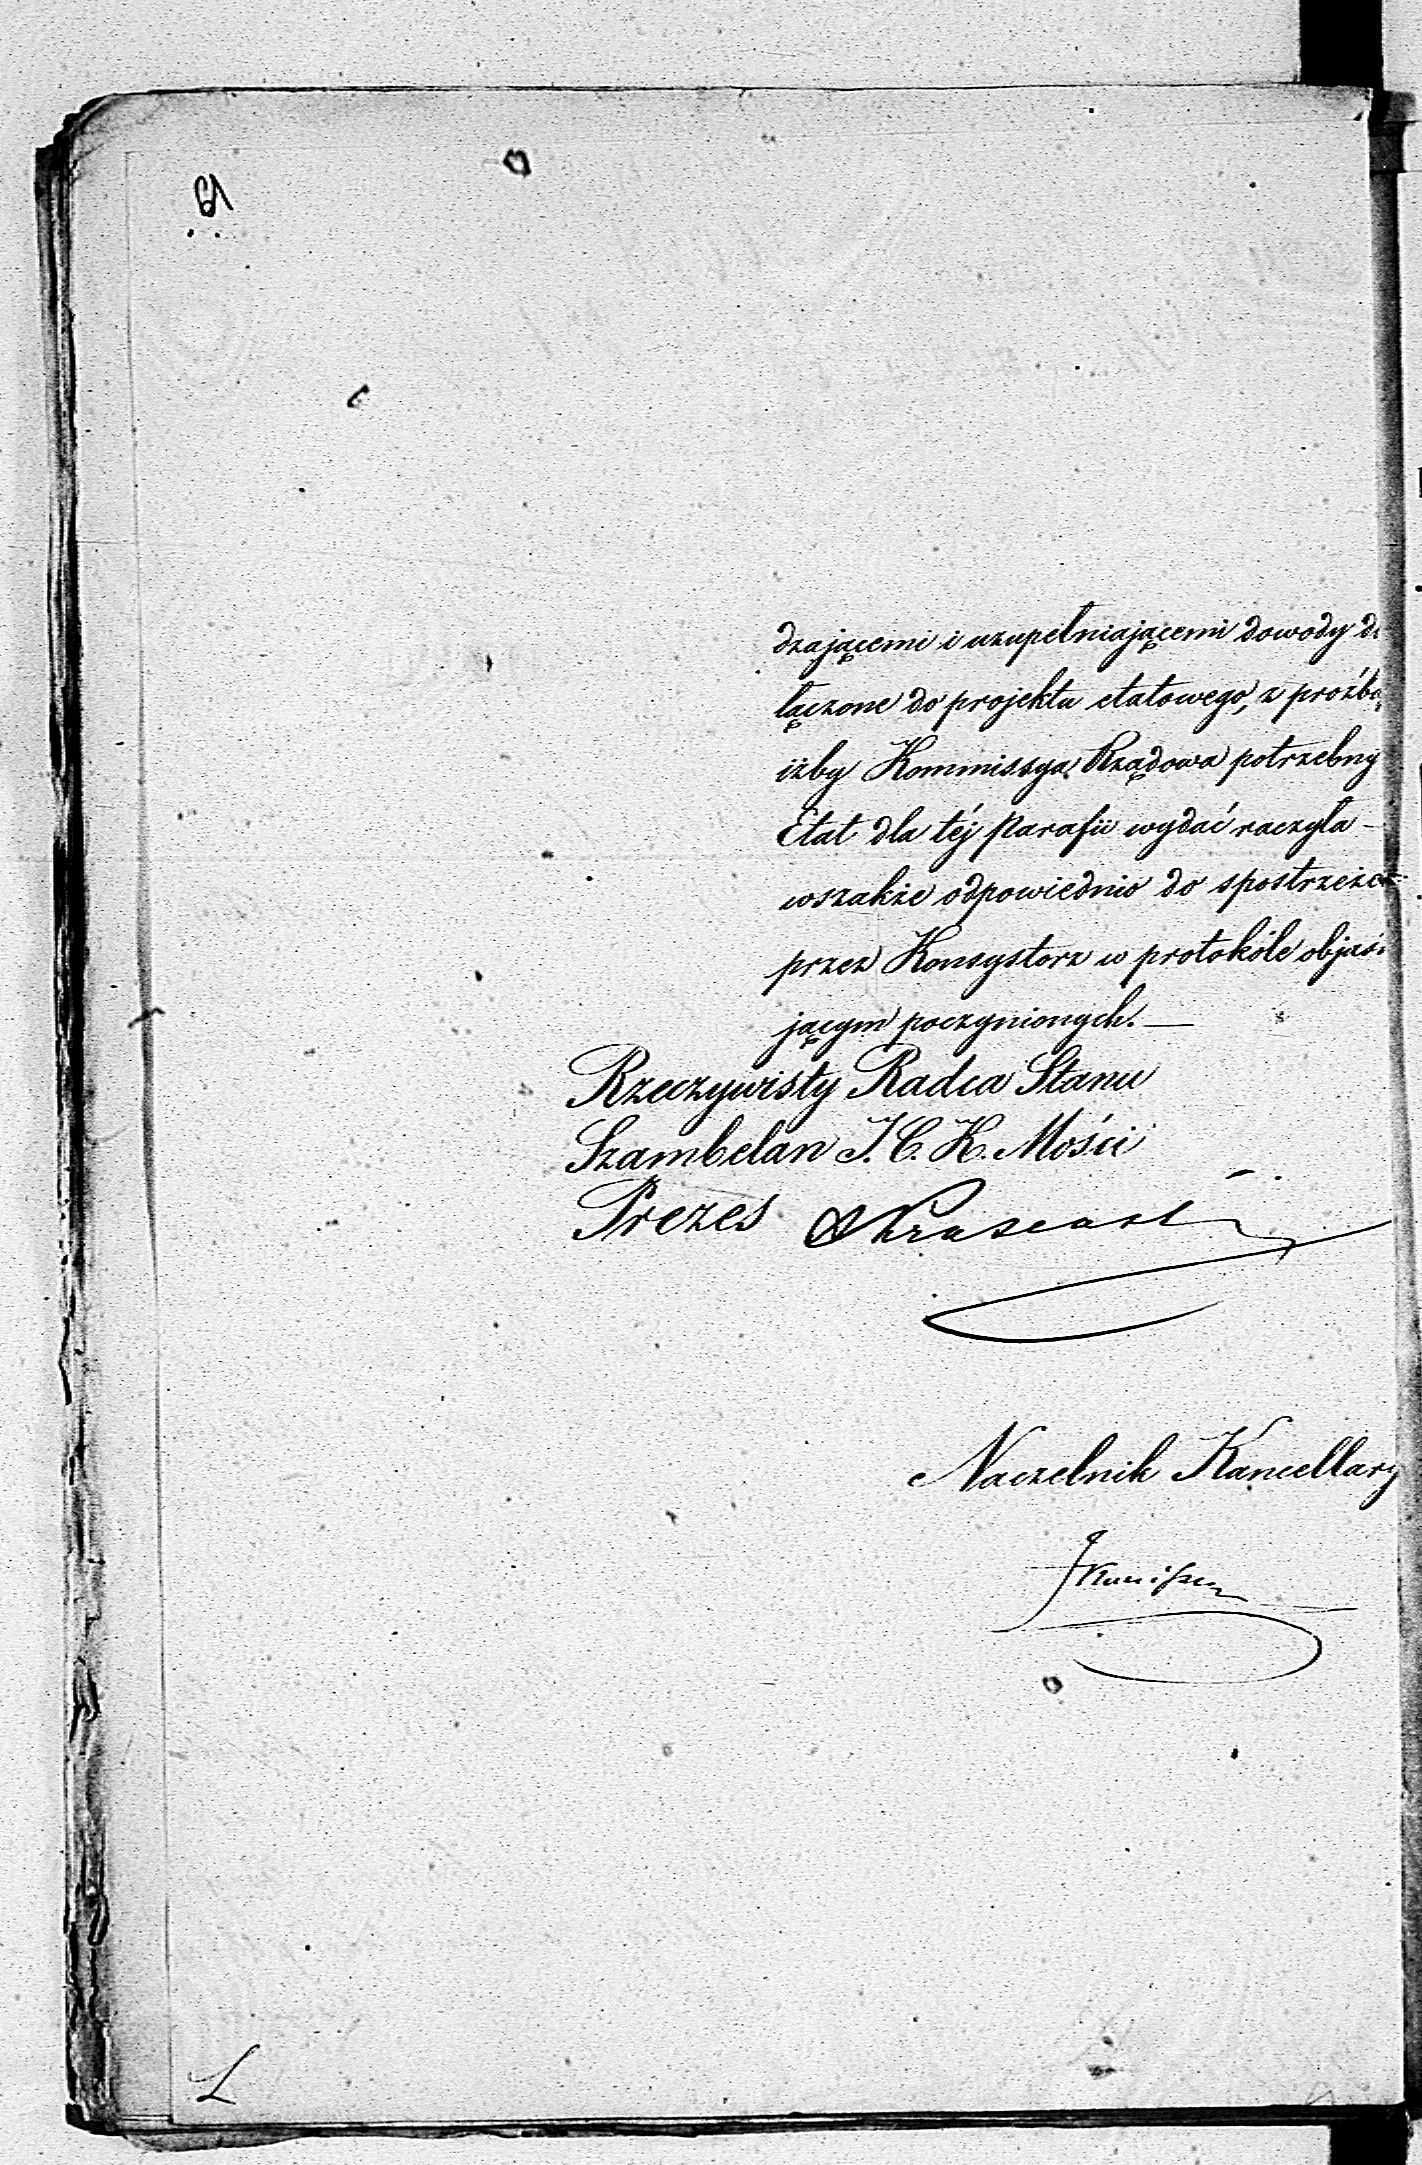 61
dzającemi i uzupełniającemi dowody do
łączone do projektu etatowego, z proźbą
iżby Kommissya Rządowa potrzebny
Etat dla téj Parafii wydać raczyła —
wszakże odpowiednio do spostrzeżeń
przez Konsystorz w protokóle objaś
jącym poczynionych. —
Rzeczywisty Radca Stanu
Szambelan J. C. K. Mości
Prezes
Naczelnik Kancellary
L